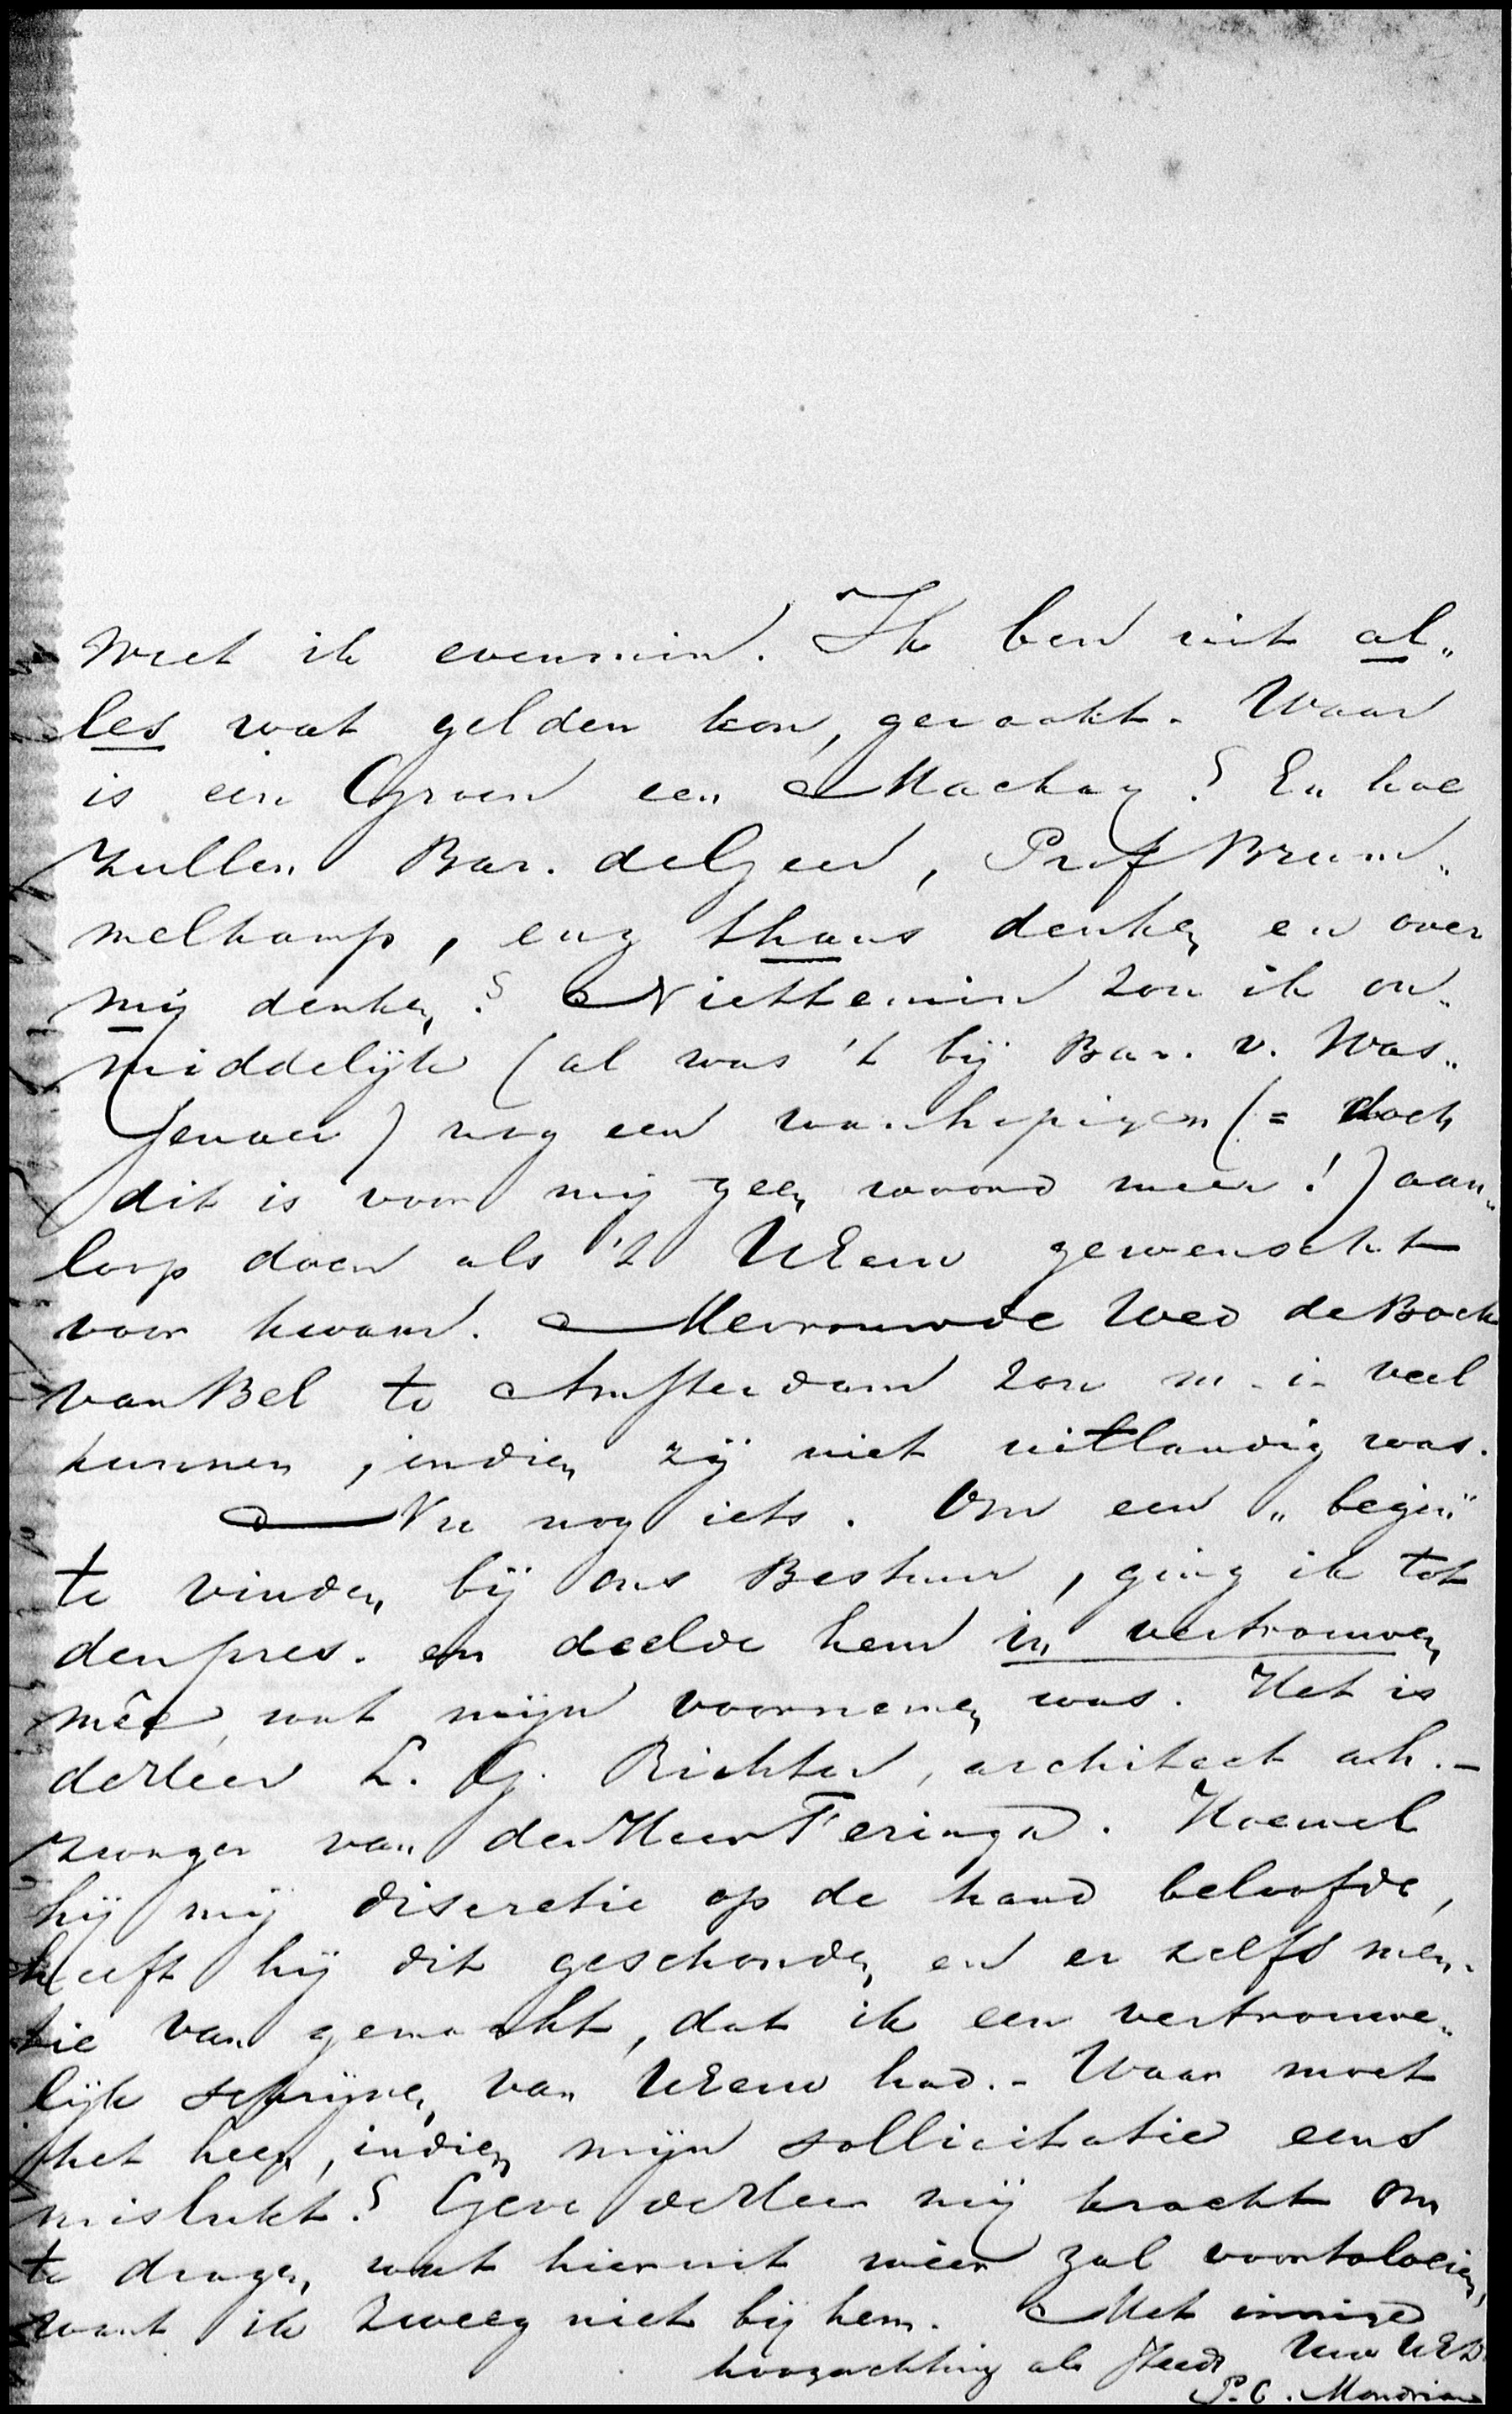 weet ik evenmin. Ik ben uit al„
les wat gelden kon, geraakt. Waar
is een Groen een Mackay? En hoe
zullen Bar. de Geer, Prof Brum„
melkamp, enz thans denken en over
mij denken? Niettemin zou ik on„
middelijk (al was 't bij Bar. v. Was„
senaer) nog een wanhopigen (= doch
dit is voor mij geen woord meer!) aan„
loop doen als 't UEew gewenscht
voor kwam. Mevrouw de Wed de Bock
van Bel te Amsterdam zou m. i. veel
kunnen, indien zij niet uitlandig was.
Nu nog iets. Om een „begin"
te vinden bij ons Bestuur, ging ik tot
den pres. en deelde hem in vertrouwen
mêe, wat mijn voornemen was. Het is
de Heer L. G. Richter, architect
zwager van den Heer Feringa. Hoewel
hij mij discretie op de hand beloofde,
heeft hij dit geschonden en er zelfs men„
tie van gemaakt, dat ik een vertrouwe„
lijk schrijven van UEew had. - Waar moet
het heen, indien mijn sollicitatie eens
mislukt? Geve de Heer mij kracht om
te dragen, wat hieruit méér zal voortvloeien,
want ik zweeg niet bij hem. Met innige
hoogachting als steeds Uw UEDr
P. C. Mondriaan